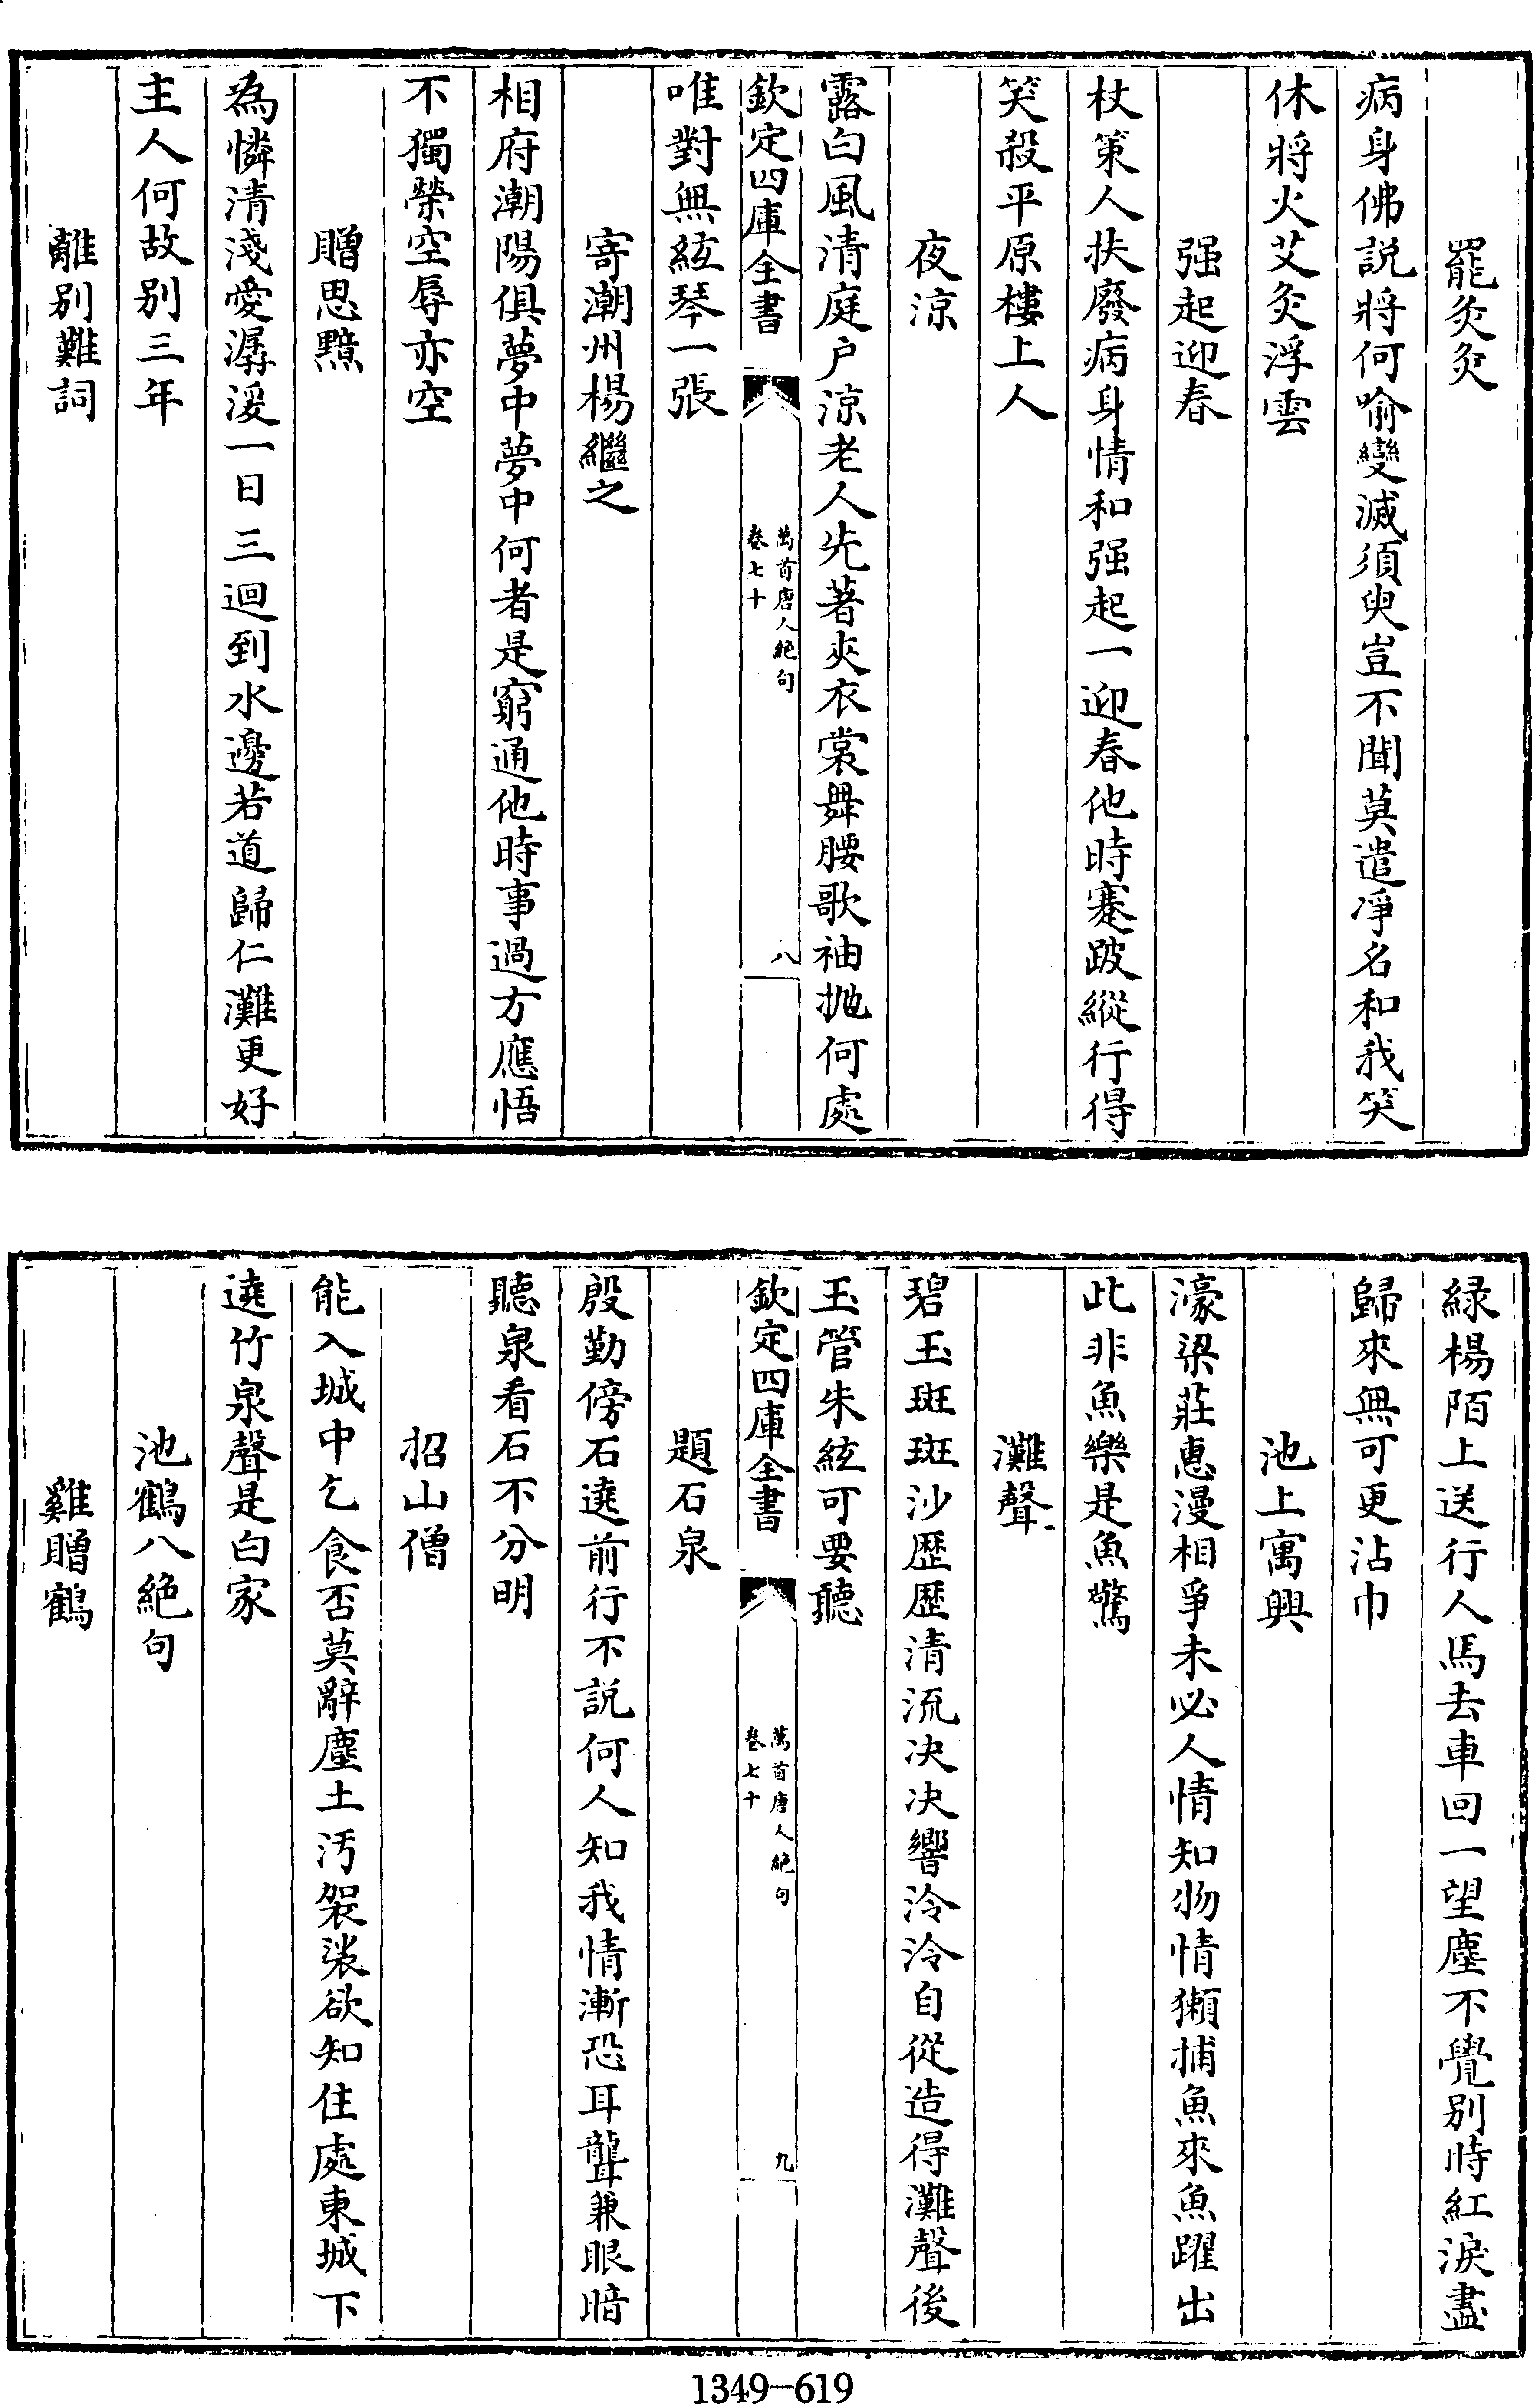 罷灸灸
病身佛説將何喻變滅須臾豈不聞莫遣凈名和我笑
休將火艾灸浮雲
强起迎春
杖策人扶廢病身情和强起一迎春他時蹇跛縱行得
笑殺平原樓上人
夜涼
露白風清庭户涼老人先著夾衣裳舞腰歌袖抛何處
欽定四庫全書
萬首唐人絶句
卷七十
八
唯對無絃琴一張
寄潮州楊繼之
相府潮陽俱夢中夢中何者是窮通他時事過方應悟
不獨榮空辱亦空
贈思黯
為憐清淺愛潺湲一日三迴到水邊若道歸仁灘更好
主人何故别三年
離别難詞
緑楊陌上送行人馬去車回一望塵不覺别時紅淚盡
歸來無可更沾巾
池上寓興
濠梁莊惠漫相爭未必人情知物情獺捕魚來魚躍出
此非魚樂是魚驚
灘聲
碧玉斑斑沙歴歴清流决决響泠泠自從造得灘聲後
玉管朱絃可要聽
欽定四庫全書
萬首唐人絶句
卷七十
九
題石泉
殷勤傍石遶前行不説何人知我情漸恐耳聾兼眼暗
聽泉看石不分明
招山僧
能入城中乞食否莫辭塵土汚袈裟欲知住處東城下
遶竹泉聲是白家
池鶴八絶句
雞贈鶴
1349-619